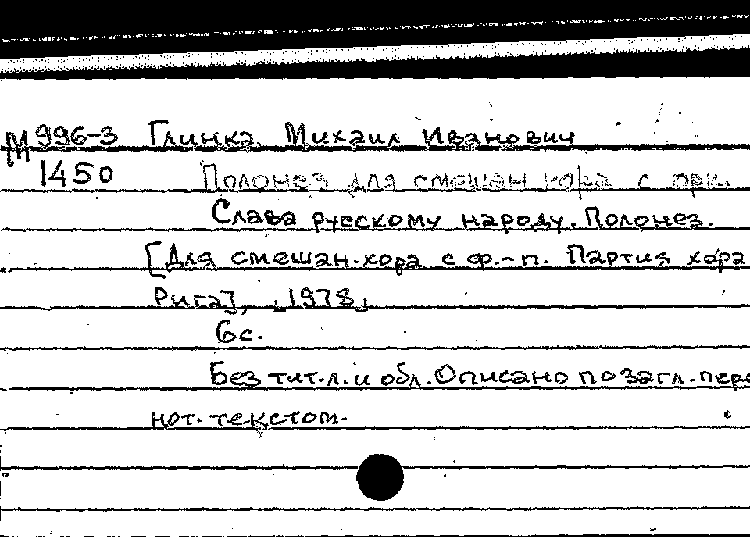 М 996-3 Глинка, Михаил Иванович
1450 Полонез для смешан. хора с орк.
Слава русскому народу. Полонез.
[Для смешан. хора с ф.-п. Партия хора
Рига], 1978
6с.
Без тит. л. и обл. Описано по загл. пере
нот. текстом.